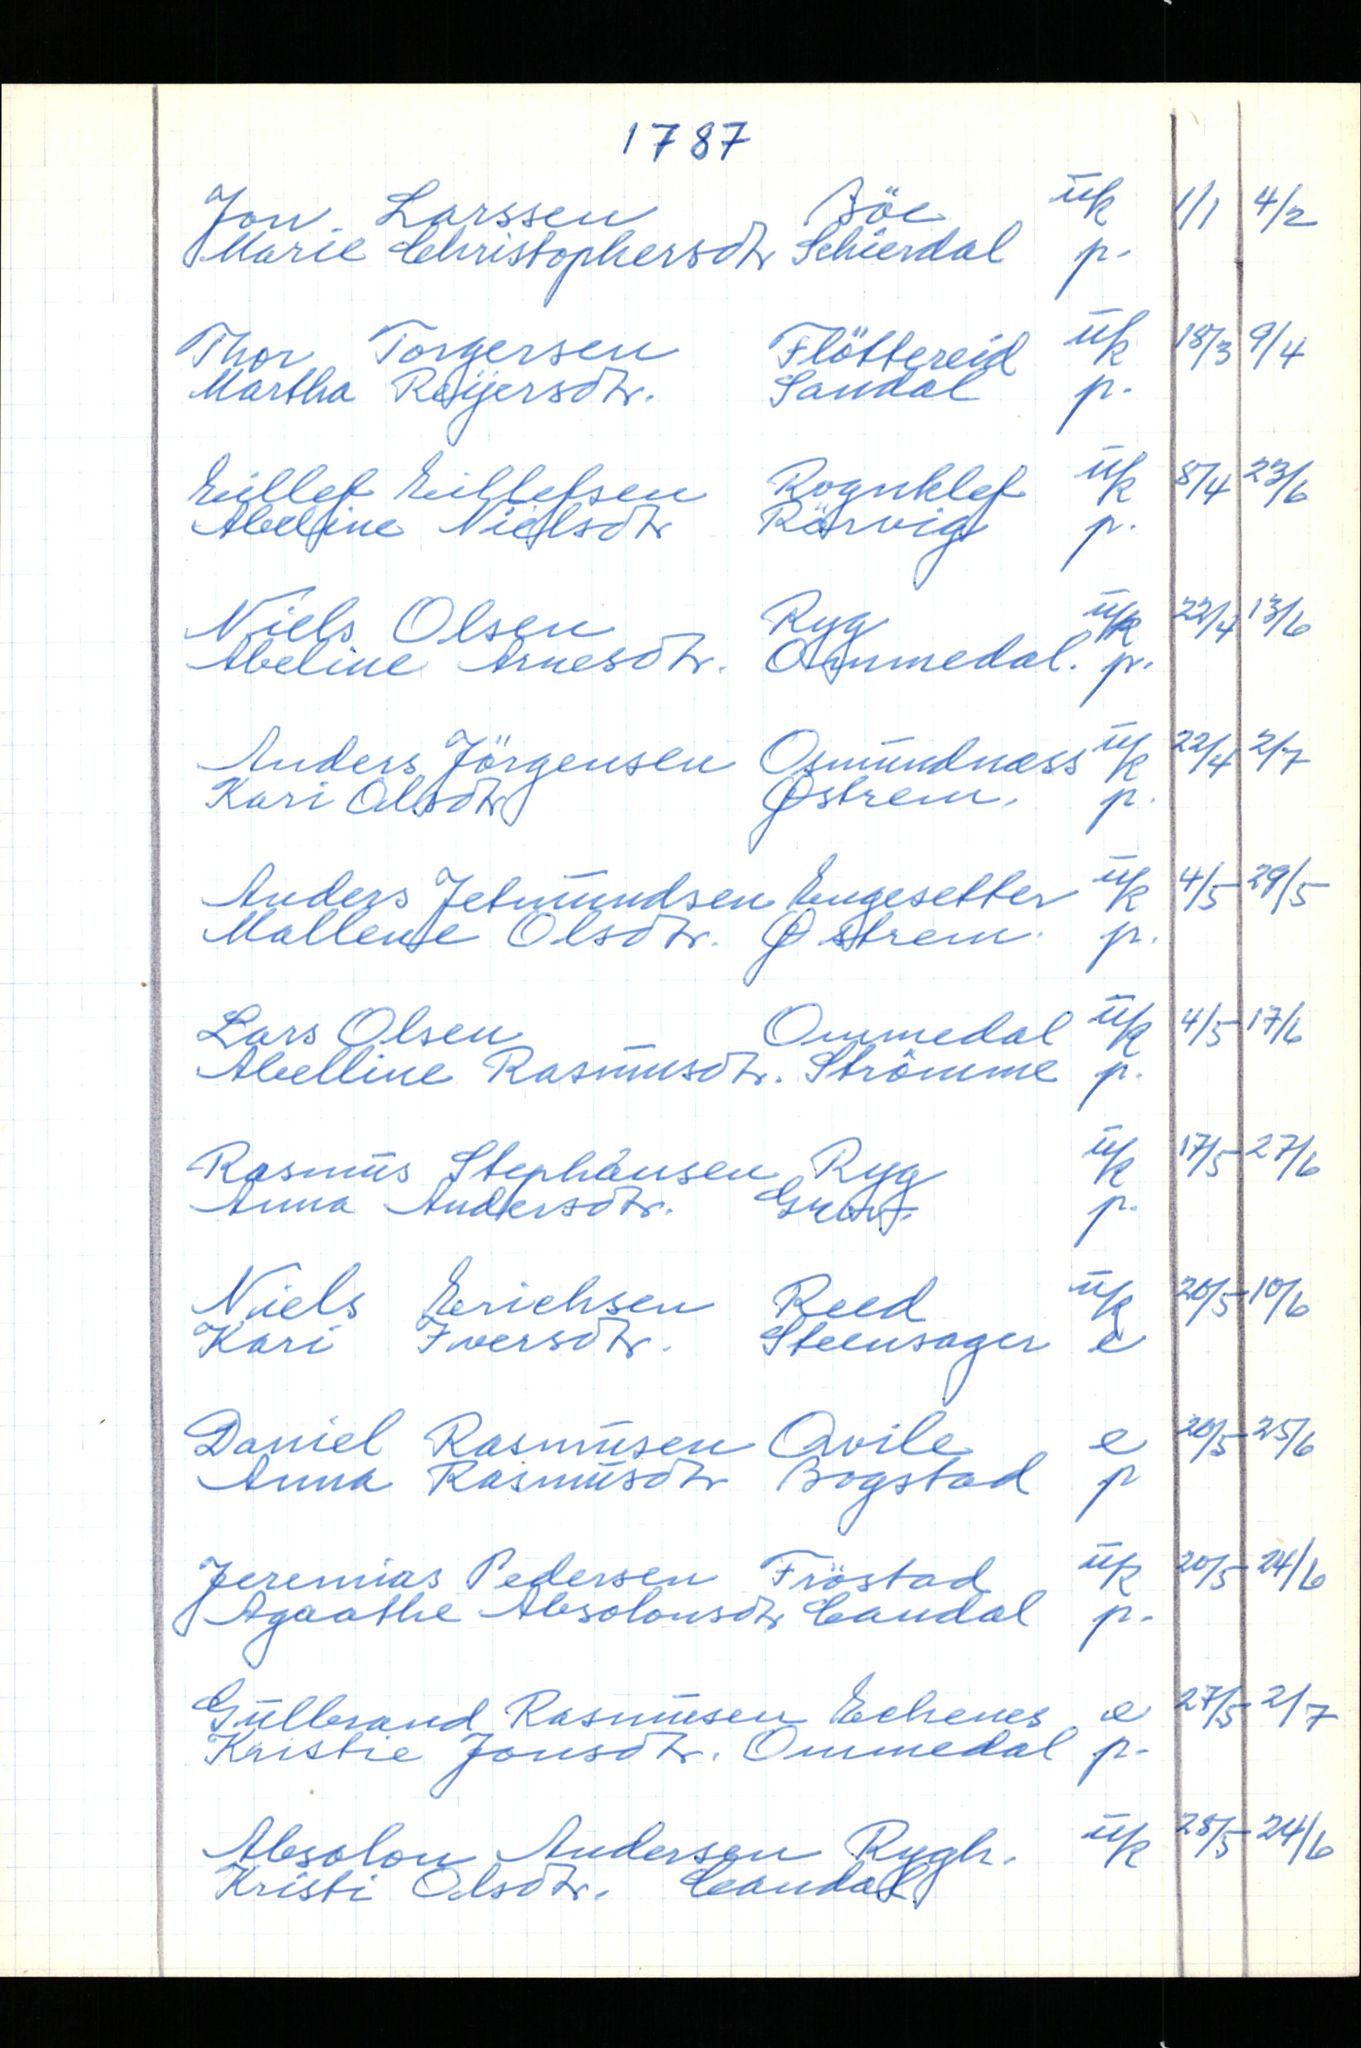 1787
Jon Larssen Böe uk 1/1 4/2
Marie Christophersdtr Schierdal p.
Thor Torgersen Flöttereid uk 18/3 9/4
Martha Reijersdtr. Sandal p.
Eillef Eillefsen Rognklef uk 8/4 23/6
Abeline Nielsdtr Rörvig p.
Niels Olsen Ryg uk 22/4 13/6
Abeline Arnesdtr. Ommedal. p.
Anders Jörgensen Osmundnæss uk 22/4 2/7
Kari Olsdtr Østrem. p.
Anders Jetmundsen Engesetter uk 4/5 29/5
Mallene Olsdtr. Østrem. p.
Lars Olsen Ommedal uk 4/5 17/6
Abelline Rasmusdtr. Strömme p.
Rasmus Stephänsen Ryg uk 17/5 27/6
Anna Andersdtr. p.
Niels Erichsen Reed uk 20/5 10/6
Kari Iversdtr. Steensager e
Daniel Rasmusen Qvile e 20/5 25/6
Anna Rasmusdtr Bogstad p
Jeremias Pedersen Fröstad uk 20/5 24/6
Agaathe Absolonsdtr Candal p.
Gulbrand Rasmusen Echenes e 27/5 2/7
Kristie Jonsdtr. Ommedal p.
Absolon Andersen Rygh. uk 28/5 24/6
Kristi Olsdtr. Candal